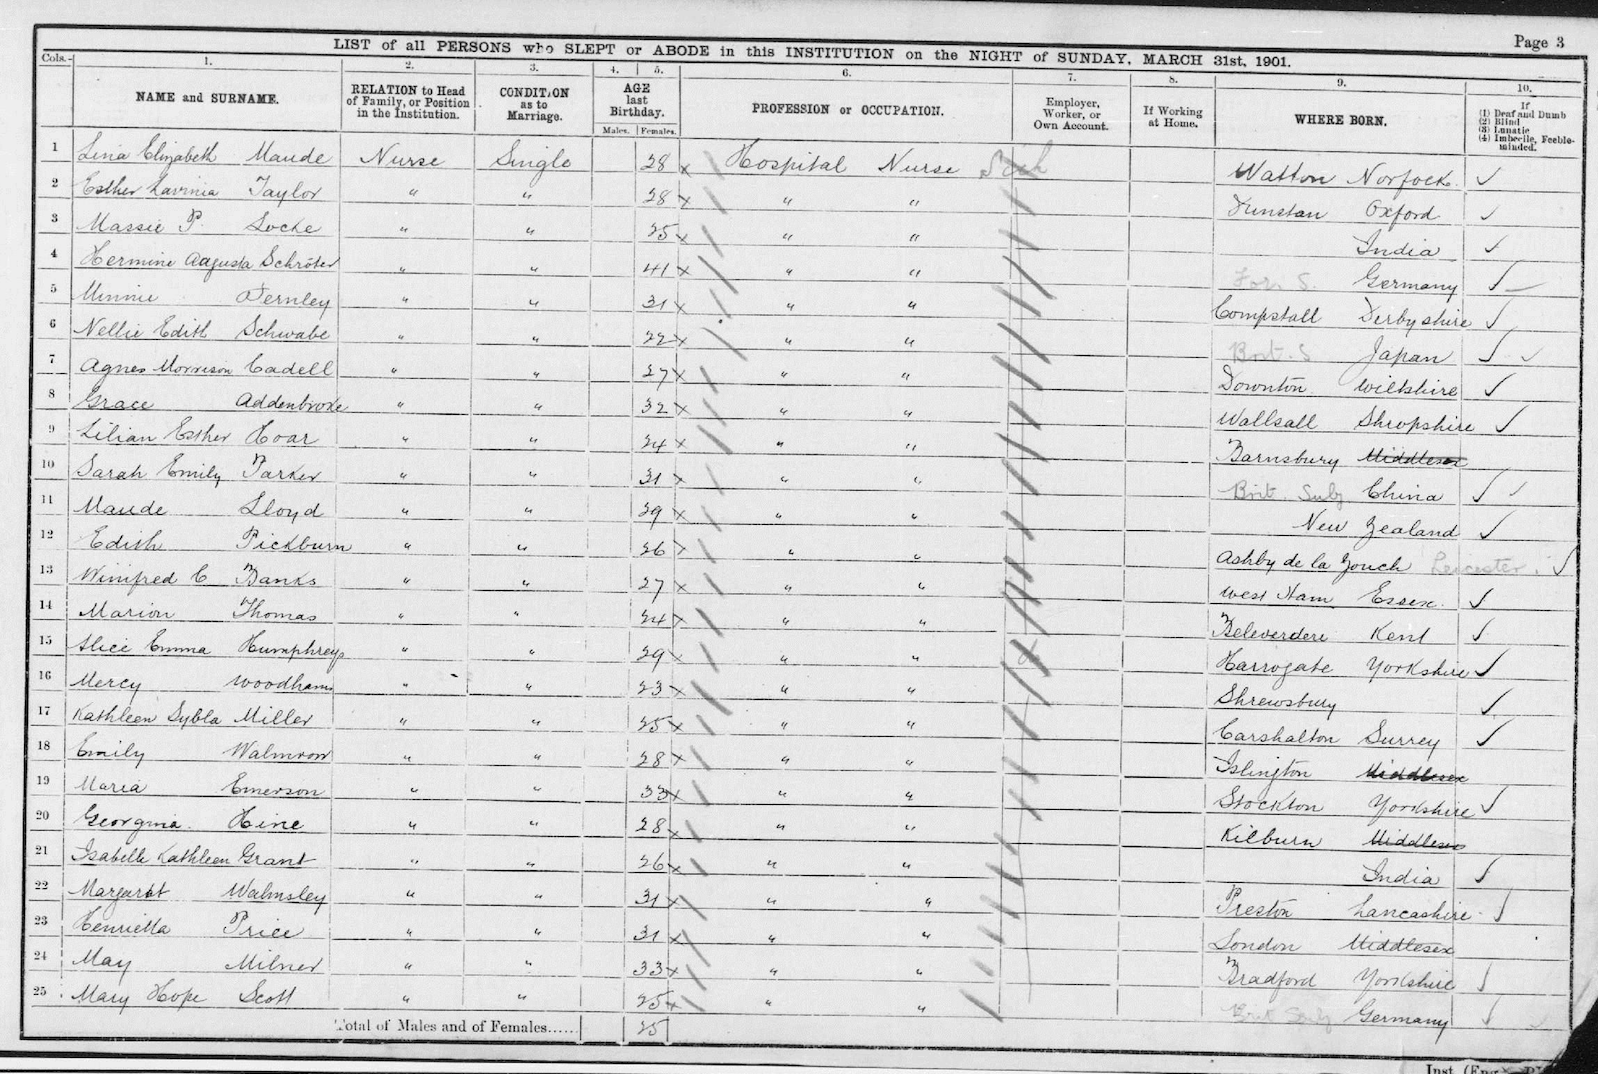 Page 3
LIST of all PERSONS who SLEPT or ABODE in this INSTITUTION on the NIGHT of SUNDAY, MARCH 31st, 1901.
Cols.- 1. 2. 3. 4. 5. 6. 7. 8. 9. 10.
NAME and SURNAME. RELATION to Head of Family, or Position in the Institution. CONDITION as to Marriage. AGE last Birthday. Males. Females. PROFESSION or OCCUPATION. Employer, Worker, or Own Account. If Working at Home. WHERE BORN. If (1) Deaf and Dumb (2) Blind (3) Lunatic (4) Imbecile, Feeble-minded.
1 Lina Elizabeth Maude Nurse Single 28 Hospital Nurse Sick Watton Norfock
2 Esther Lavinia Taylor " " 28 " " Dunstan Oxford
3 Massie P. Locke " " 25 " " India
4 Hermine Augusta Schröter " " 41 " " For. S. Germany
5 Minnie Fernley " " 31 " " Compstall Derbyshire
6 Nellie Edith Schwabe " " 22 " " Brit. S Japan
7 Agnes Morrison Cadell " " 27 " " Downton Wiltshire
8 Grace Addenbroke " " 32 " " Wallsall Shropshire
9 Lilian Esther Hoar " " 24 " " Barnsbury Middlesex
10 Sarah Emily Parker " " 31 " " Brit. Subj China
11 Maude Lloyd " " 29 " " New Zealand
12 Edith Pickburn " " 26 " " Ashby de la Zouch Leicester
13 Winifred C Banks " " 27 " " West Ham Essex
14 Marion Thomas " " 24 " " Beleverdere Kent
15 Alice Emma Humphreys " " 29 " " Harrogate Yorkshire
16 Mercy Woodhams " " 23 " " Shrewsbury
17 Kathleen Sybla Miller " " 25 " " Carshalton Surrey
18 Emily " " 28 " " Islington Middlesex
19 Maria Emerson " " 33 " " Stockton Yorkshire
20 Georgina Hine " " 28 " " Kilburn Middlesex
21 Isabelle Kathleen Grant " " 26 " " India
22 Margaret Walmsley " " 31 " " Preston Lancashire
23 Henrietta Price " " 31 " " London Middlesex
24 May Milner " " 33 " " Bradford Yorkshire
25 Mary Hope Scott " " 25 " " Brit Subj Germany
Total of Males and of Females...... 25